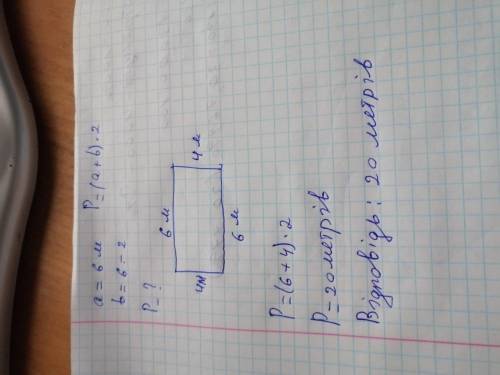 a = 6 м P = (a + b) · 2
b = 6 - 2
P - ?
4 м
6 м
6 м
4 м
P = (6 + 4) · 2
P = 20 метрів
Відповідь: 20 метрів